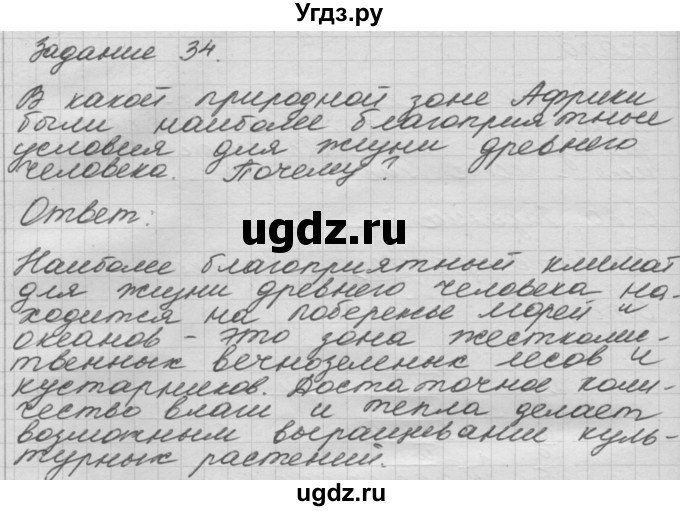 Угдз.ру
Задание 34.
В какой природной зоне Африки
были наиболее благоприятные
условия для жизни древнего
человека. Почему?
Ответ:
ugdz.ru
Наиболее благоприятный климат
для жизни древнего человека на-
ходится на побережье морей и
океанов - это зона жестколис-
твенных вечнозеленых лесов и
кустарников. Достаточное коли-
чество влаги и тепла делает
возможным выращевании куль-
турных растений.
ugdz.ru